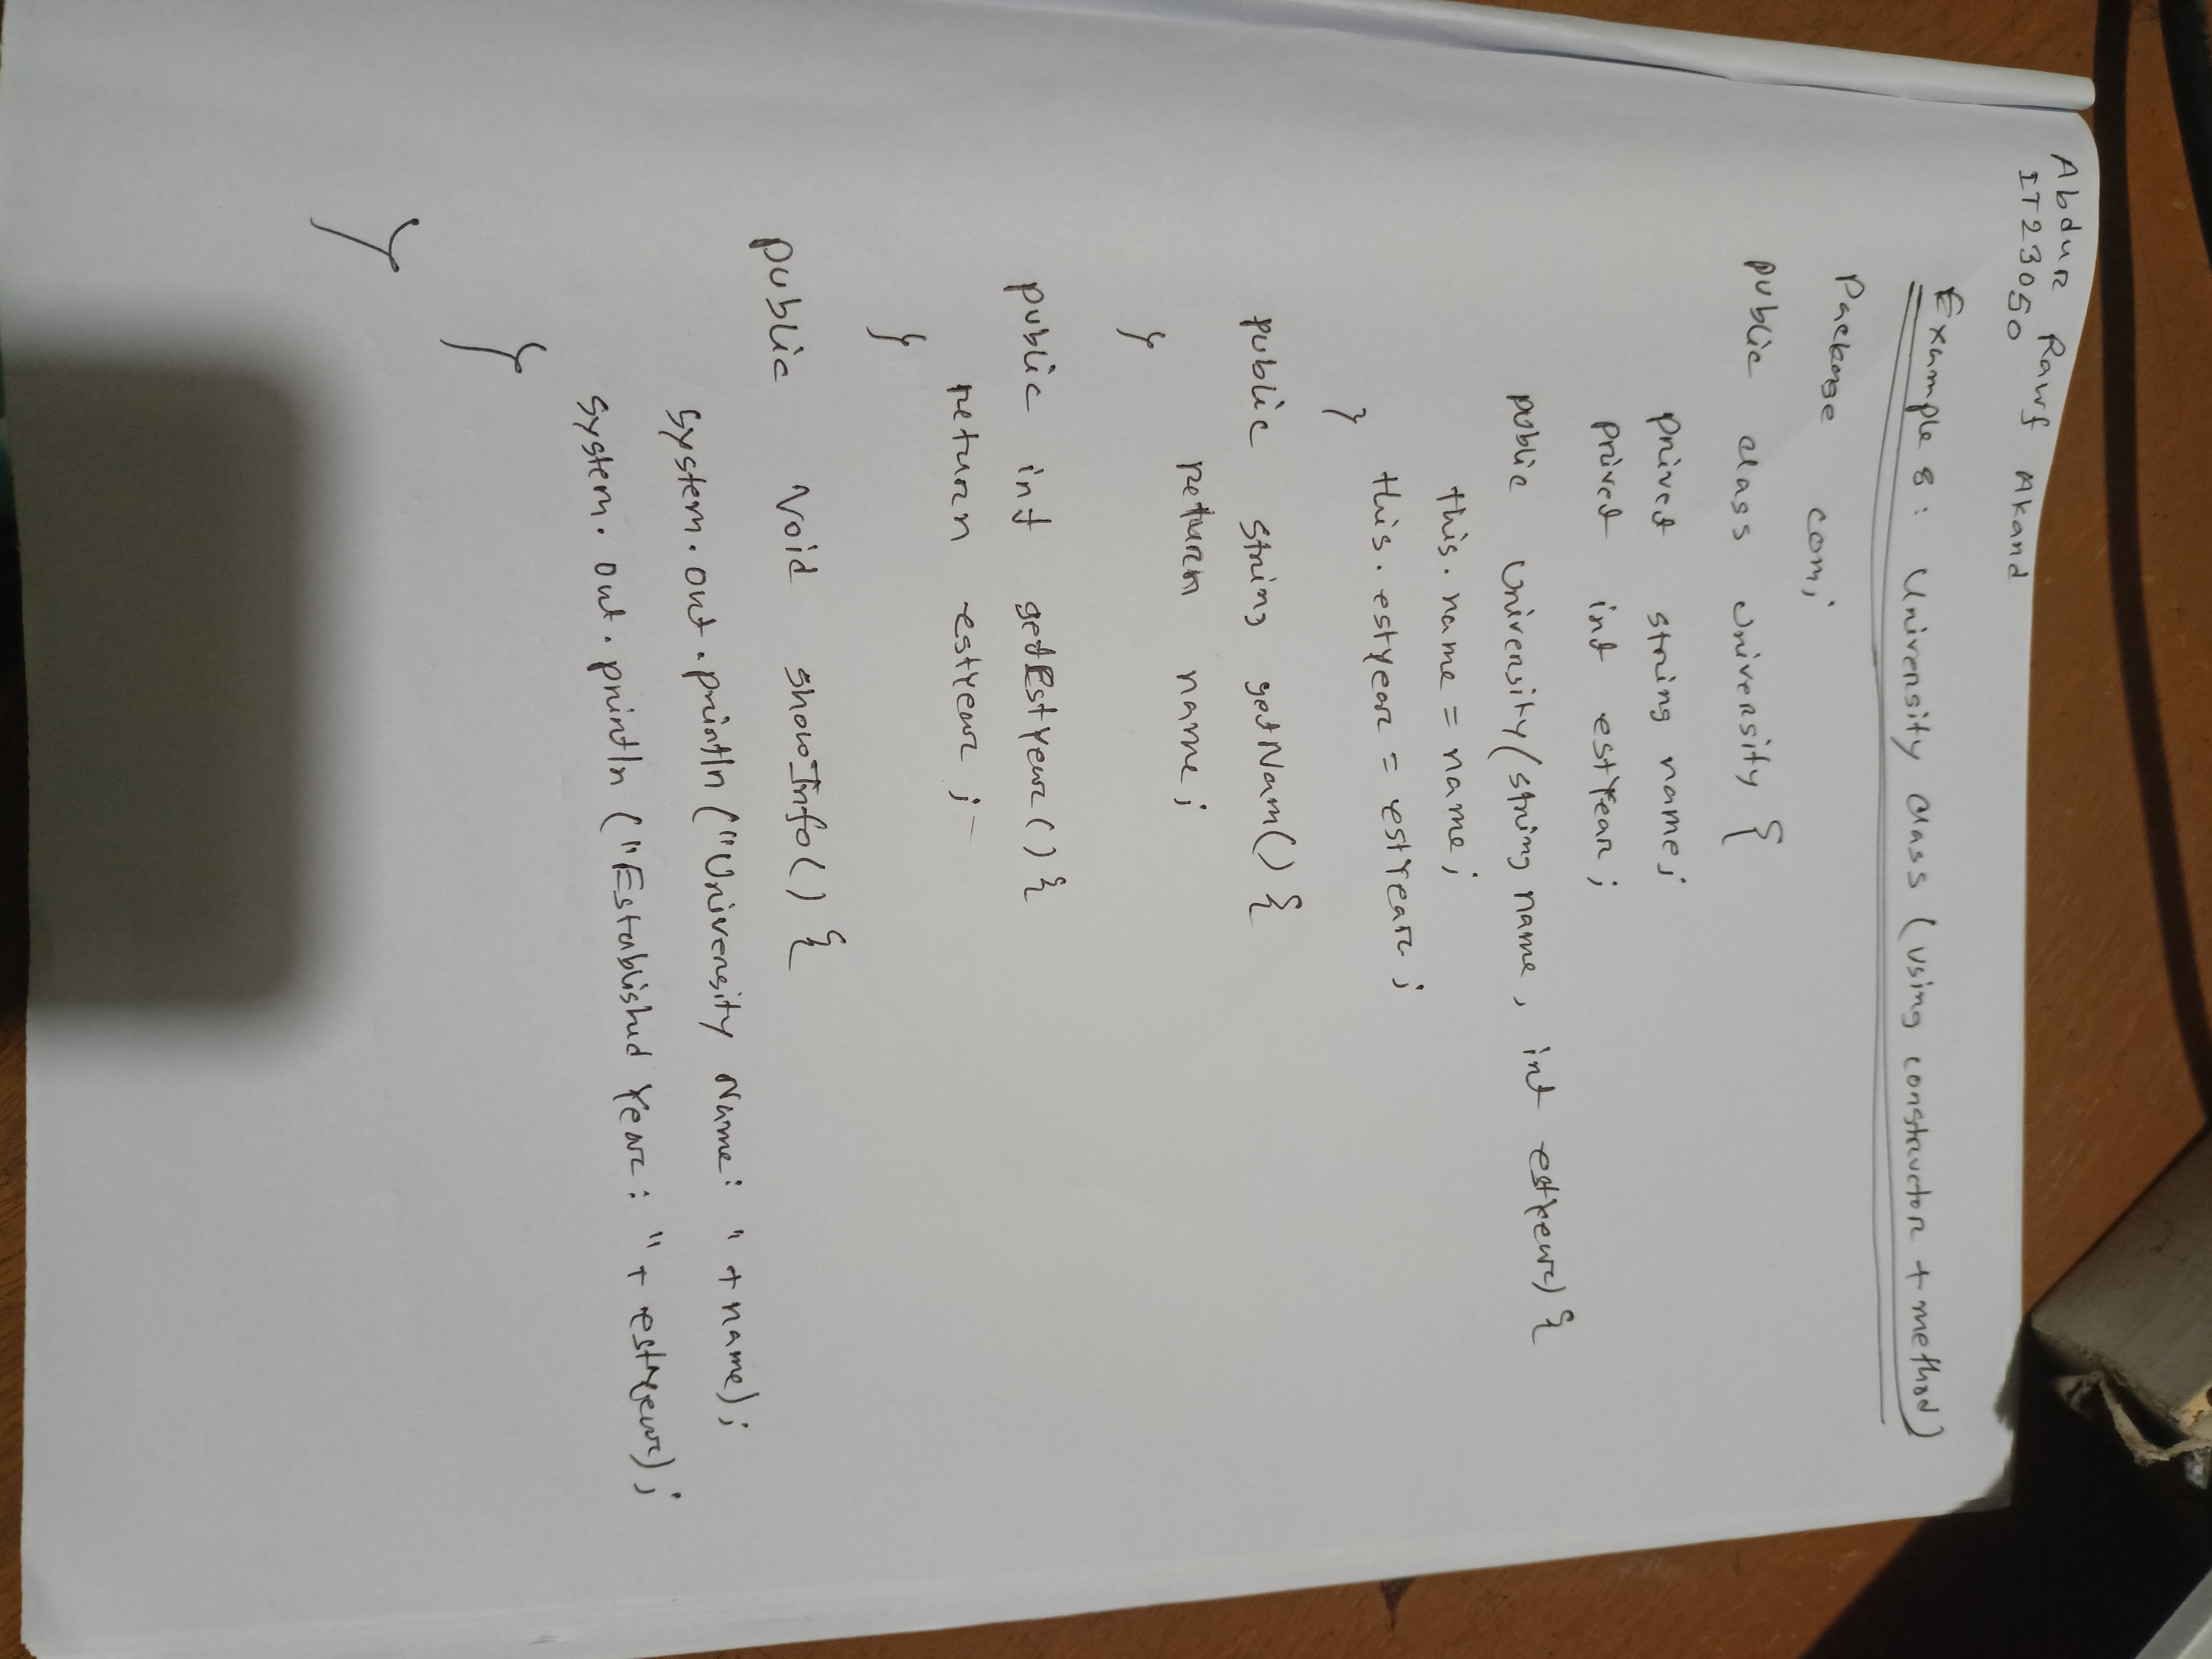 Abdur Rawf Akand
IT23050
Example 8: University class (using constructor + method)
Package com;
public class University {
privet string name;
privet int estYear;
public University(string name, int estYear) {
this.name = name;
this.estyear = estYear;
}
public string getNam() {
return name;
}
public int getEstYear() {
return estYear;
}
public void showInfo() {
system.out.println("University Name: " + name);
system.out.println("Established Year: " + estYear);
}
}